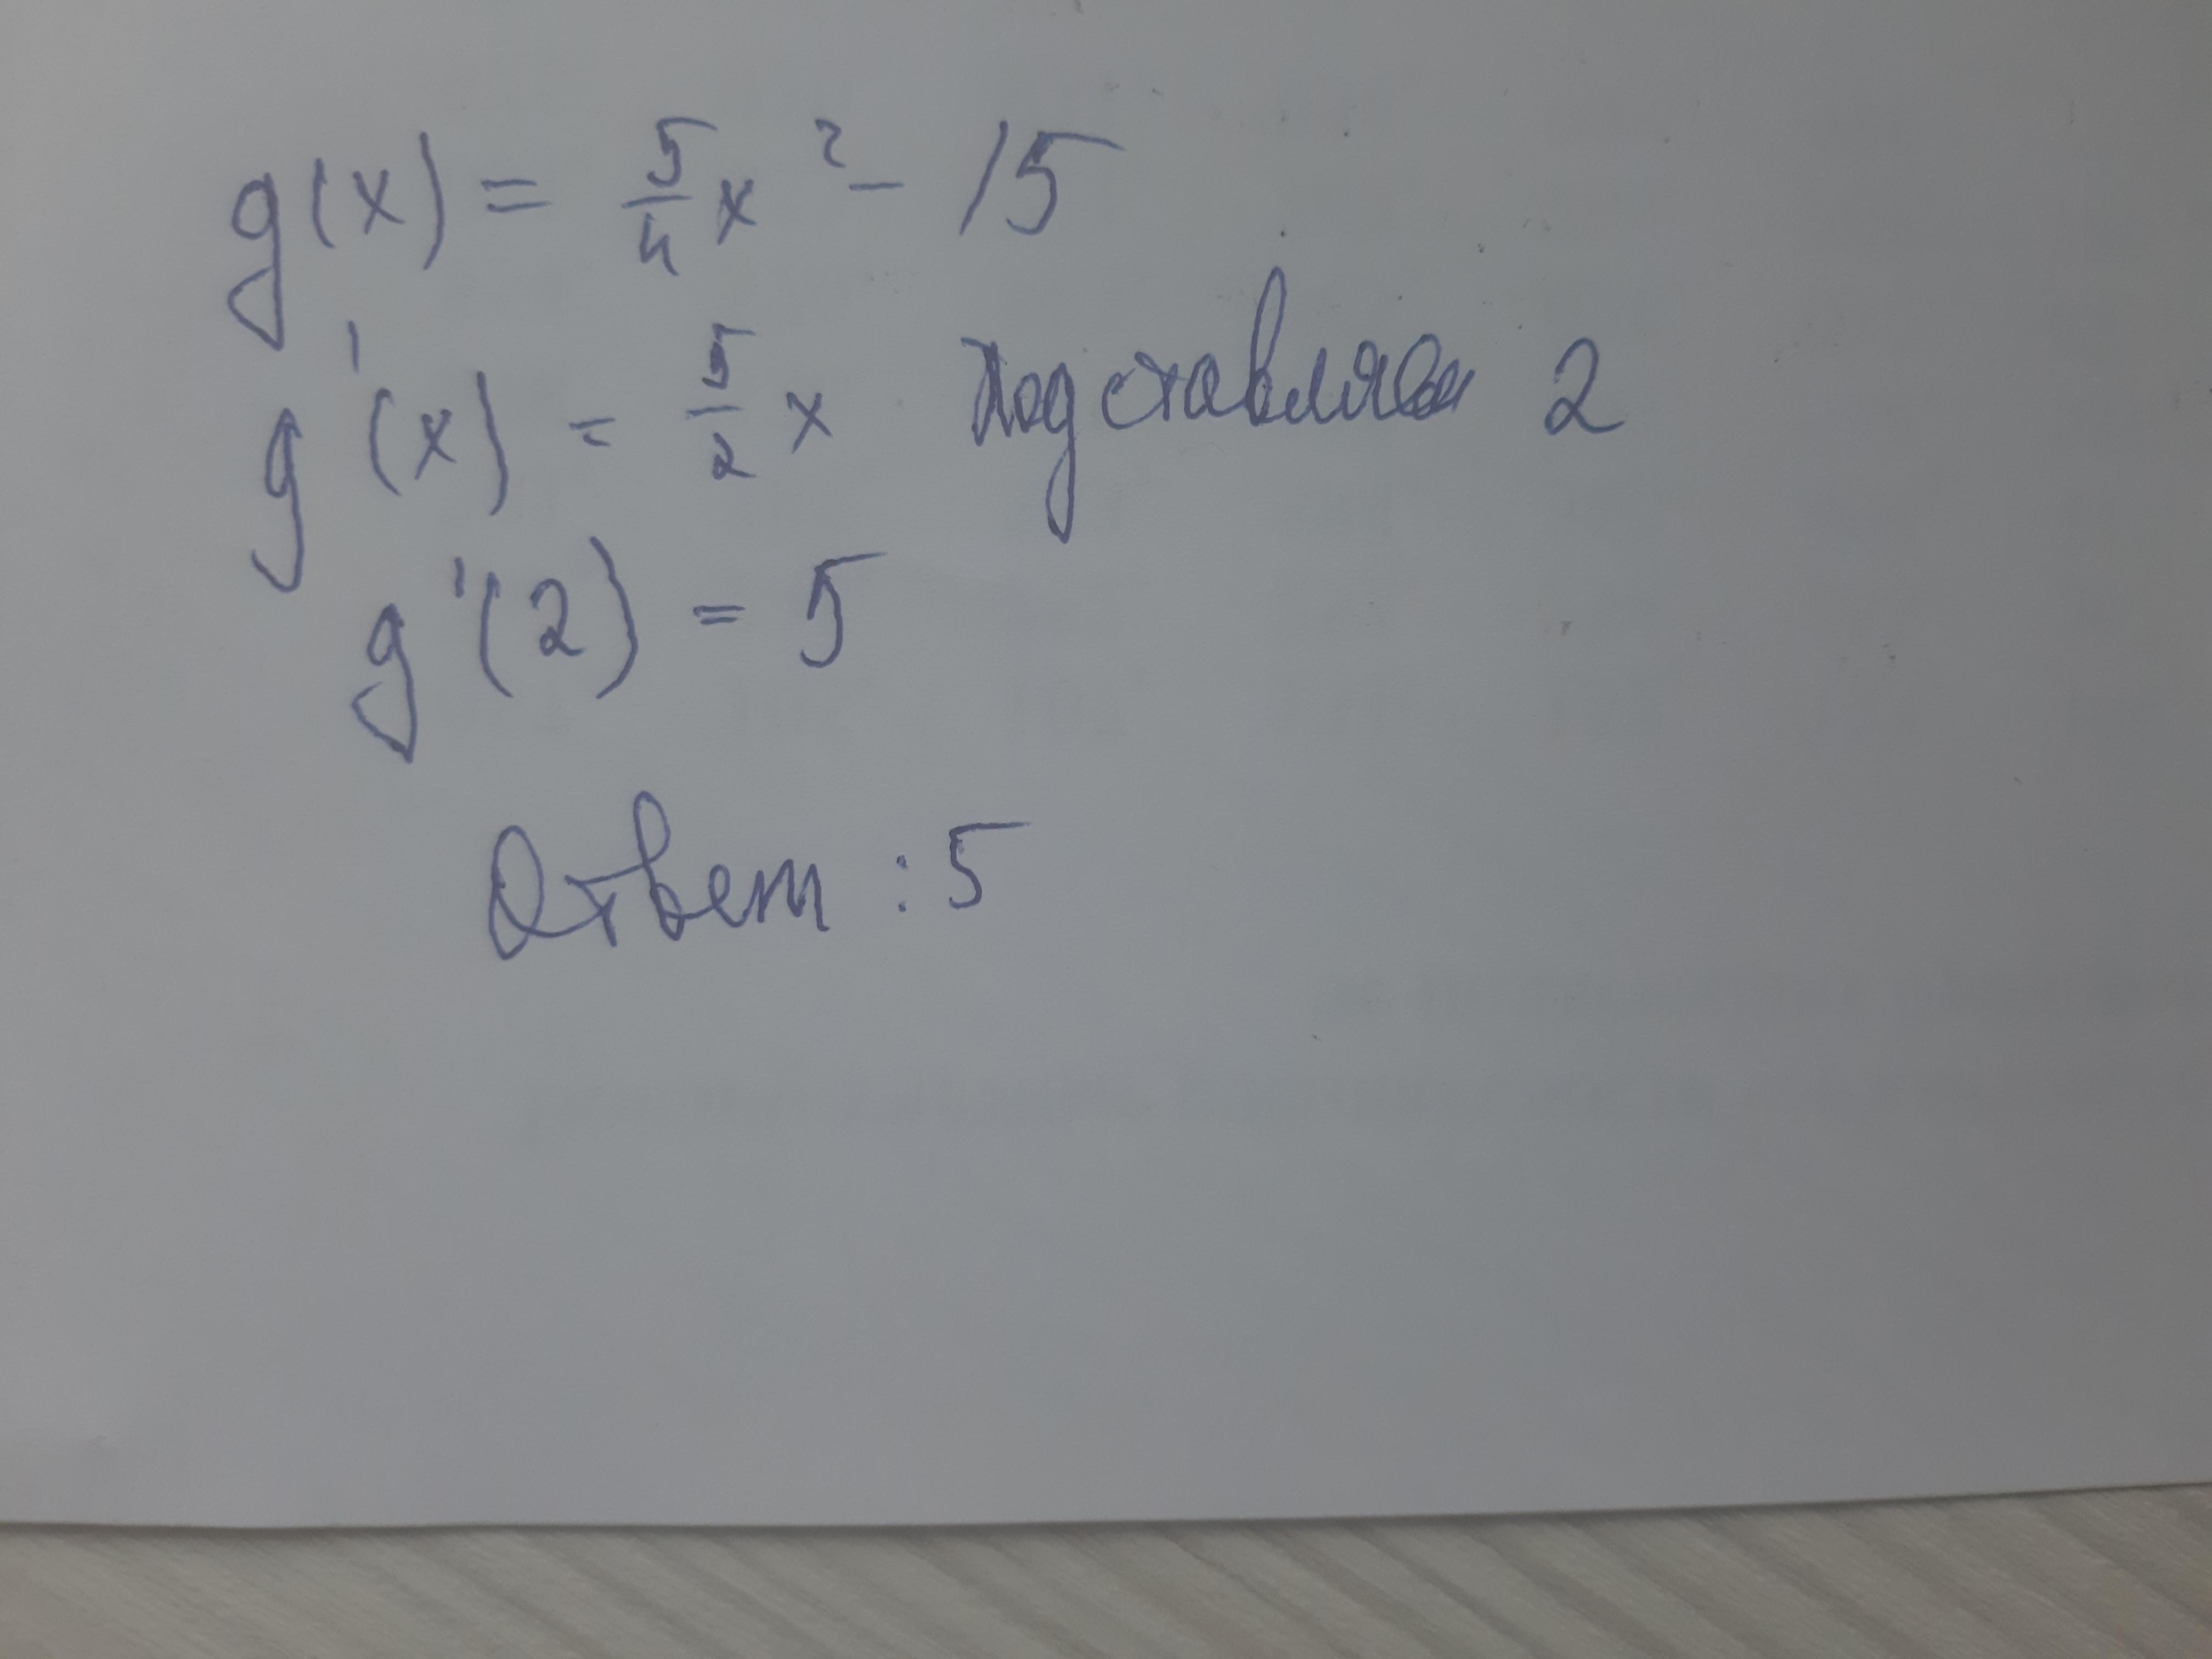 g(x) = 5/4 x² - 15
g'(x) = 5/2 x подставляем 2
g'(2) = 5
Ответ : 5